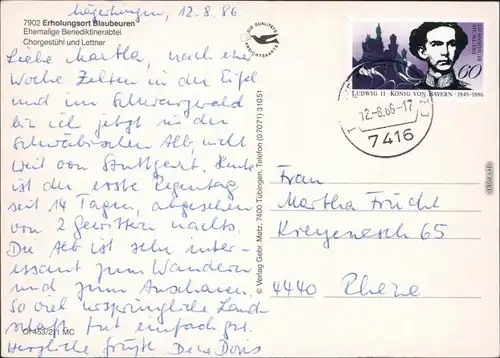 Mägerkingen, 12.8.86
7902 Erholungsort Blaubeuren
Ehemalige Benediktinerabtei
Chorgestühl und Lettner
Liebe Martha, nach einer
Woche Zelten in der Eifel
und im Schwarzwald
bin ich jetzt in der
Schwäbischen Alb, nicht
weit von Stuttgart. Heute
ist der erste Regentag
seit 14 Tagen, abgesehen
von 2 Gewittern nachts.
Die Alb ist sehr inter-
essant zum Wandern
und zum Anschauen.
So viel ursprüngliche Land-
schaft tut einfach gut.
Herzliche Grüße Deine Doris
MC
DIE QUALITÄTS
ANSICHTSKARTE
© Verlag Gebr. Metz, 7400 Tübingen, Telefon (07071) 31051
DEUTSCHE BUNDESPOST
60
LUDWIG II · KÖNIG VON BAYERN 1845-1886
12.-8.86-17
7416
Frau
Martha Frücht
Kreyenesch 65
4440 Rheine